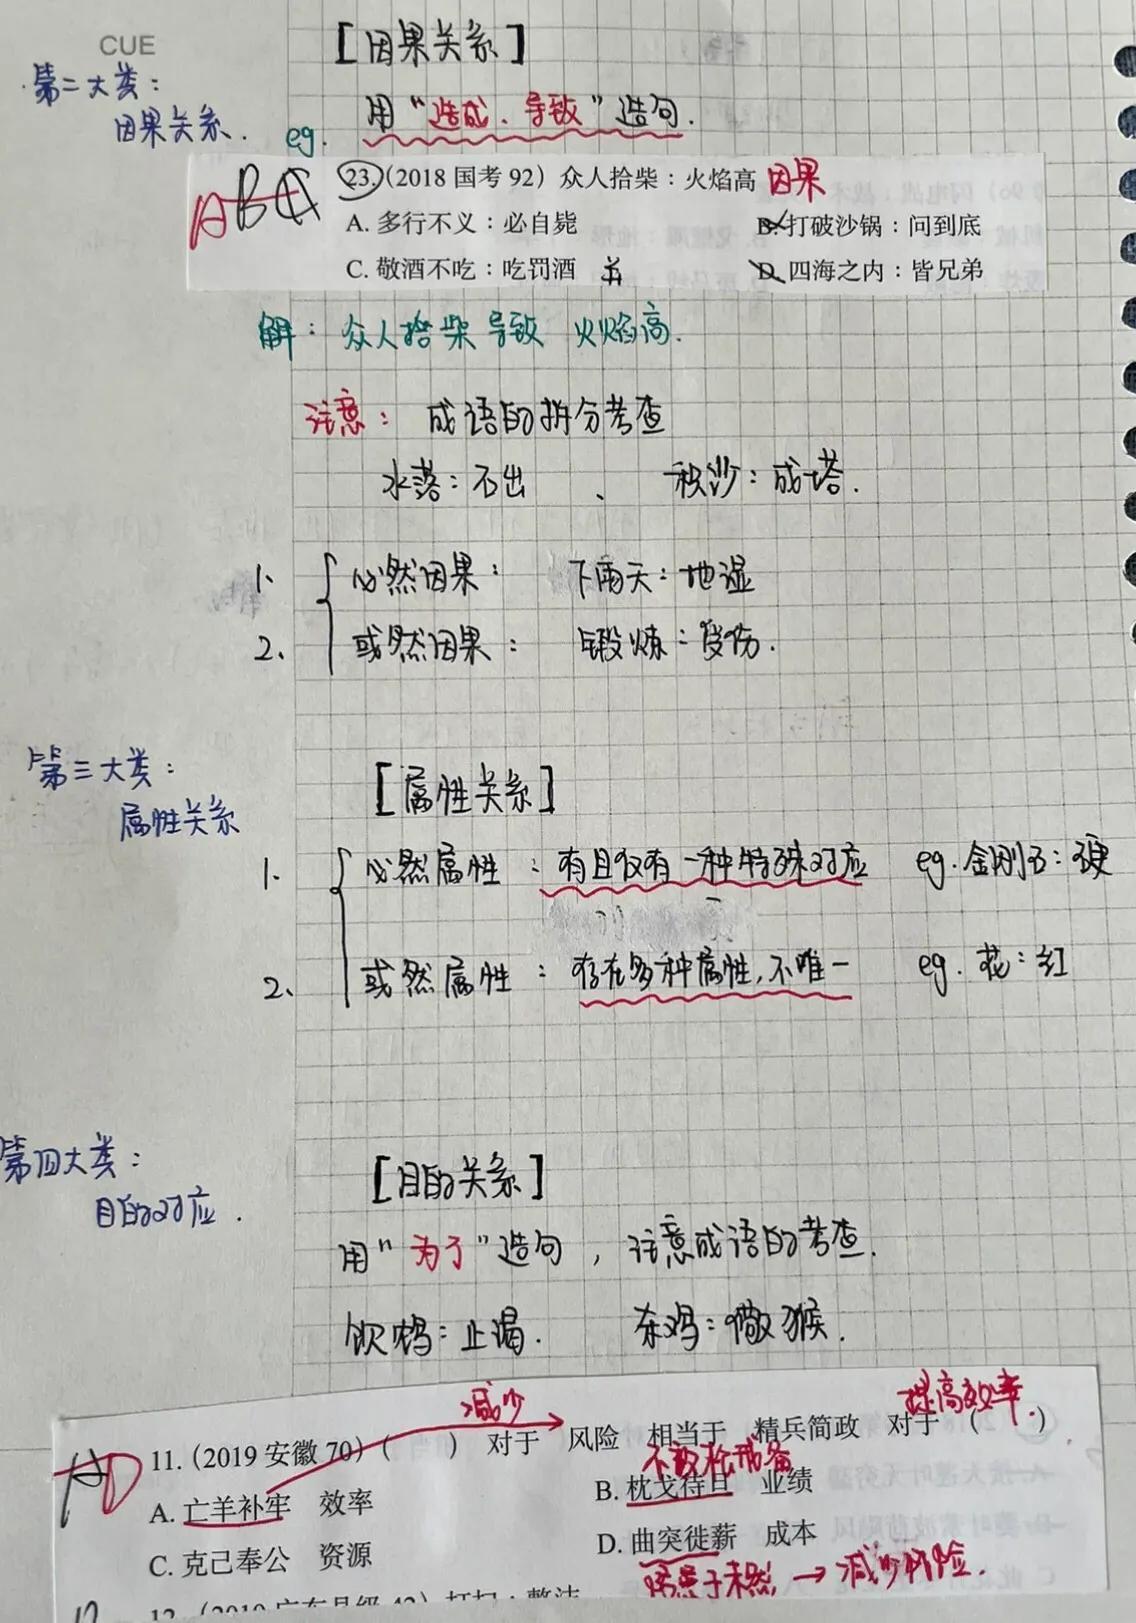 CUE
[因果关系]
第二大类：
因果关系.
用“造成、导致”造句.
eg.
ABA
23.(2018 国考 92）众人拾柴：火焰高 因果
A. 多行不义：必自毙 B. 打破沙锅：问到底
C. 敬酒不吃：吃罚酒 并 D. 四海之内：皆兄弟
解：众人拾柴 导致 火焰高.
注意：成语的拆分考查
水落：石出 、 积沙：成塔.
1、必然因果： 下雨天：地湿
2、或然因果： 锻炼：受伤.
第三大类：
属性关系
[属性关系]
1、必然属性：有且仅有一种特殊对应 eg.金刚石：硬
2、或然属性：存在多种属性,不唯一 eg.花：红
第四大类：
目的对应.
[目的关系]
用“为了”造句，注意成语的考查.
饮鸩：止渴. 杀鸡：儆猴.
减少 提高效率.
11.（2019 安徽 70）（ ） 对于 风险 相当于 精兵简政 对于（ ）
AD
不敢松戒备
A. 亡羊补牢 效率 B. 枕戈待旦 业绩
C. 克己奉公 资源 D. 曲突徙薪 成本
防患于未然 → 减少风险.
12.（2019 广东县级 42）打扫：整洁